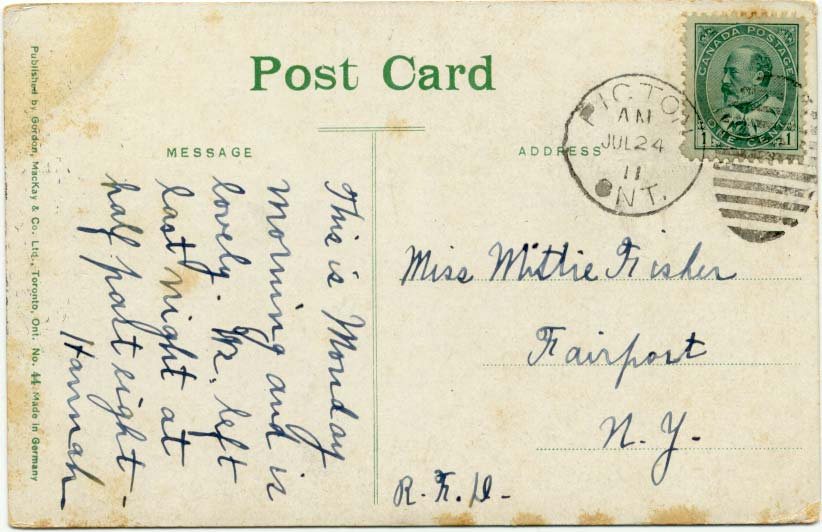 Post Card
CANADA POSTAGE
1 ONE CENT 1
PICTO
AM
JUL 24
11
ONT.
MESSAGE
ADDRESS
This is Monday
morning and is
lovely. left
last night at
half past eight -
Hannah
Miss Mittie Fisher
Fairport
N. Y.
R. F. D-
Published by Gordon, MacKay & Co. Ltd., Toronto, Ont. No. 44. Made in Germany